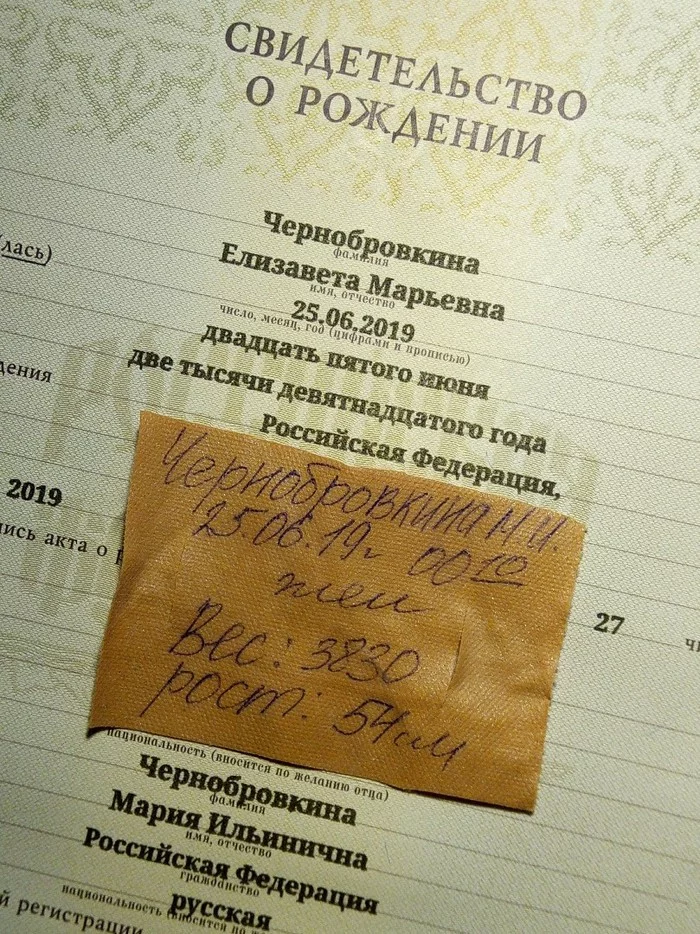 СВИДЕТЕЛЬСТВО
О РОЖДЕНИИ
Чернобровкина
фамилия
(лась)
Елизавета Марьевна
имя, отчество
25.06.2019
число, месяц, год (цифрами и прописью)
двадцать пятого июня
дения
две тысячи девятнадцатого года
Российская Федерация,
2019
Чернобровкина М.И.
25.06.19г 00 10
жен
Вес: 3830
рост: 54 см
акта о
27
национальность (вносится по желанию отца)
Чернобровкина
фамилия
Мария Ильинична
имя, отчество
Российская Федерация
гражданство
русская
национальность (вносится по
й регистрации